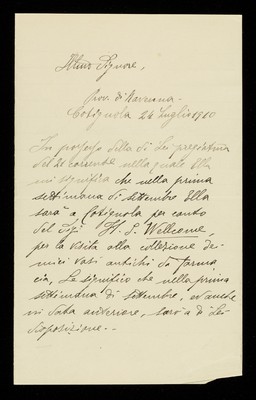 Illmo Signore,
Prov. di Ravenna -
Cotignola 24 Luglio 1910
In possesso della di Lei pregiatma
del 21 corrente nella quale Ella
mi significa che nella prima
settimana di settembre Ella
sarà a Cotignola per conto
del Sigr H. S. Wellcome,
per la visita alla collezione dei
miei vasi antichi da farma
cia, Le significo che nella prima
settimana di settembre, ed anche
in data anteriore, sarò a di Lei
disposizione. -